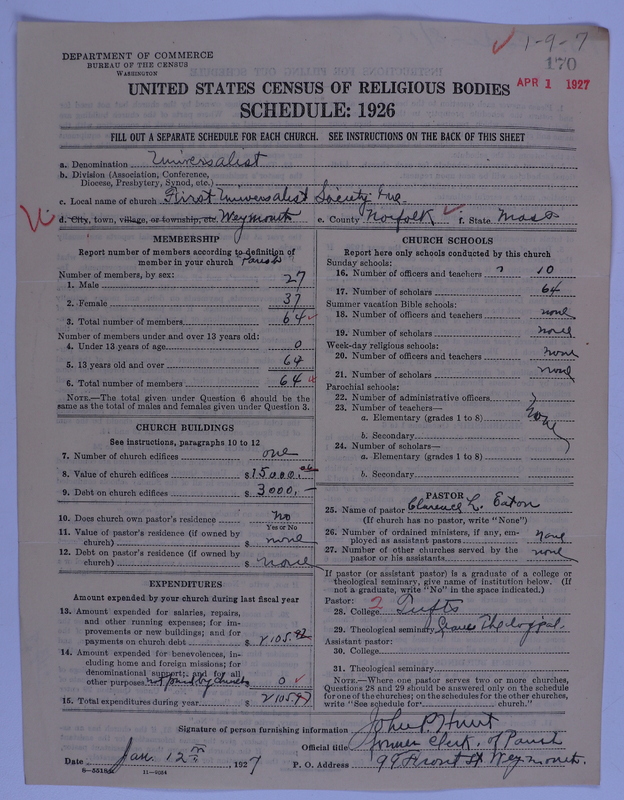 1-9-7
170
APR 1 1927
DEPARTMENT OF COMMERCE
BUREAU OF THE CENSUS
WASHINGTON
UNITED STATES CENSUS OF RELIGIOUS BODIES
SCHEDULE: 1926
FILL OUT A SEPARATE SCHEDULE FOR EACH CHURCH. SEE INSTRUCTIONS ON THE BACK OF THIS SHEET
a. Denomination Universalist
b. Division (Association, Conference,
Diocese, Presbytery, Synod, etc.)
c. Local name of church First Universalist Society Inc.
d. City, town, village, or township, etc. Weymouth e. County Norfolk f. State Mass
MEMBERSHIP
Report number of members according to definition of
member in your church Parish
Number of members, by sex:
1. Male 27
2. Female 37
3. Total number of members 64
Number of members under and over 13 years old:
4. Under 13 years of age 0
5. 13 years old and over 64
6. Total number of members 64
NOTE.—The total given under Question 6 should be the
same as the total of males and females given under Question 3.
CHURCH BUILDINGS
See instructions, paragraphs 10 to 12
7. Number of church edifices one
8. Value of church edifices $15000.00
9. Debt on church edifices $3000.—
10. Does church own pastor's residence No
Yes or No
11. Value of pastor's residence (if owned by
church) $ none
12. Debt on pastor's residence (if owned by
church) $ none
EXPENDITURES
Amount expended by your church during last fiscal year
13. Amount expended for salaries, repairs,
and other running expenses; for im-
provements or new buildings; and for
payments on church debt $ 2105.92
14. Amount expended for benevolences, in-
cluding home and foreign missions; for
denominational support; and for all
other purposes not paid by church $ 0
15. Total expenditures during year $ 2105.
CHURCH SCHOOLS
Report here only schools conducted by this church
Sunday schools:
16. Number of officers and teachers ? 10
17. Number of scholars 64
Summer vacation Bible schools:
18. Number of officers and teachers none
19. Number of scholars none
Week-day religious schools:
20. Number of officers and teachers none
21. Number of scholars none
Parochial schools:
22. Number of administrative officers
23. Number of teachers—
a. Elementary (grades 1 to 8) none
b. Secondary
24. Number of scholars—
a. Elementary (grades 1 to 8)
b. Secondary
PASTOR
25. Name of pastor Clarence L. Eaton
(If church has no pastor, write "None")
26. Number of ordained ministers, if any, em-
ployed as assistant pastors none
27. Number of other churches served by the
pastor or his assistants none
If pastor (or assistant pastor) is a graduate of a college or
theological seminary, give name of institution below. (If
not a graduate, write "No" in the space indicated.)
Pastor: 2
28. College Tufts
29. Theological seminary Crane Theological
Assistant pastor:
30. College
31. Theological seminary
NOTE.—Where one pastor serves two or more churches,
Questions 28 and 29 should be answered only on the schedule
for one of the churches; on the schedules for the other churches,
write "See schedule for church."
Signature of person furnishing information John P. Hunt
Official title former Clerk of Parish
Date Jan. 12 th, 1927 P. O. Address 99 Front St Weymouth.
11—9024